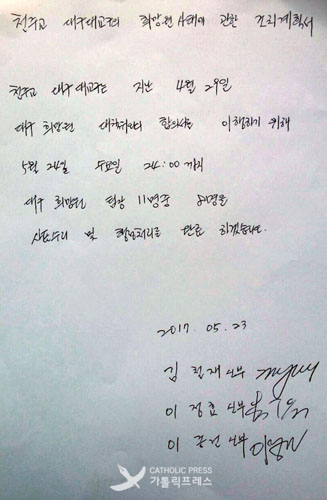 천주교 대구대교구의 희망원 사태에 관한 조치계획서
천주교 대구 대교구는 지난 4월 29일
대구 희망원 대책위와의 합의서를 이행하기 위해
5월 24일 수요일 24:00 까지
대구 희망원 팀장 11명중
사표수리 및 완료 하겠습니다.
2017. 05. 23
김 신부
이 정효 신부
이 신부
CATHOLIC PRESS
가톨릭프레스